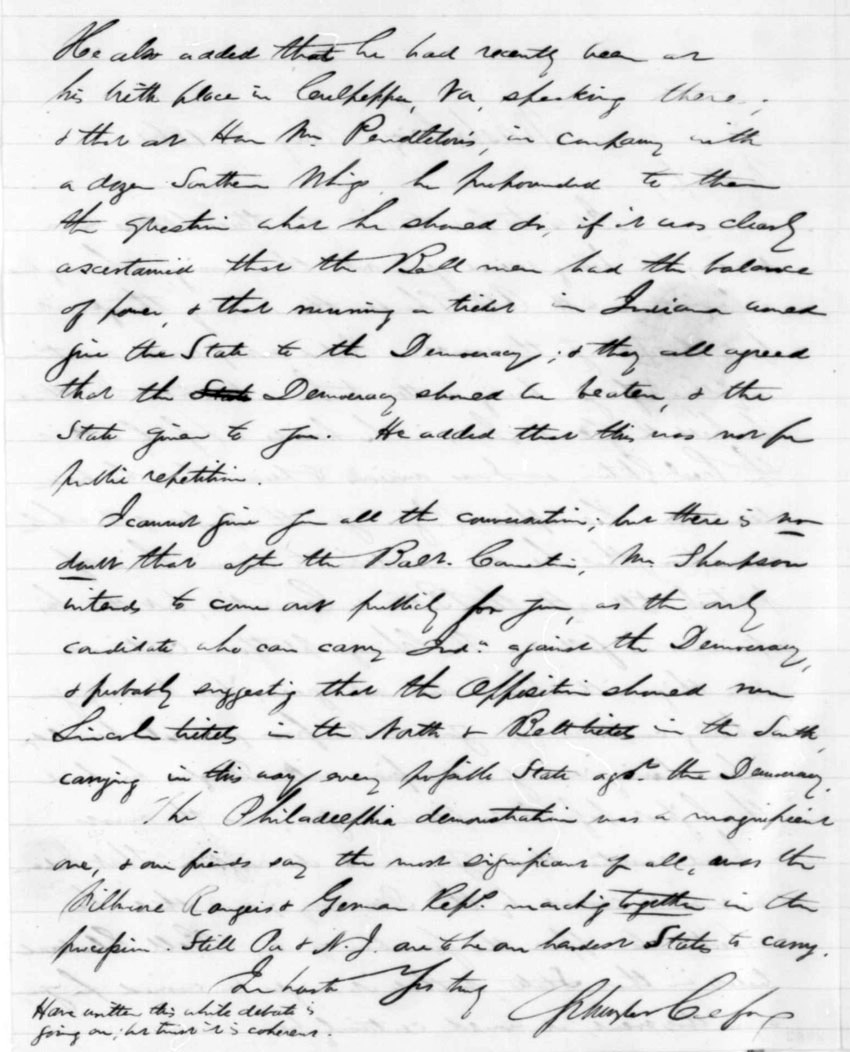 He also added that he had recently been at
his birth place in Culpeppa, Va, speaking there,
& that at Hon Mr. Pendleton's, in company with
a dozen Southern Whigs, he propounded to them
the question what he should do, if it was clearly
ascertained that the Bell men had the balance
of power, & that running a ticket in Indiana would
give the State to the Democracy; & they all agreed
that the State Democracy should be beaten, & the
State given to you. He added that this was not for
public repetition.
I cannot give you all the conversation; but there is no
doubt that after the Balt. Convention, Mr. Thompson
intends to come out publicly for you, as the only
candidate who can carry Inda. against the Democracy,
& probably suggesting that the Opposition should run
Lincoln tickets in the North & Bell tickets in the South,
carrying in this way every possible State agst. the Democracy.
The Philadelphia demonstration was a magnificent
one, & our friends say the most significant of all, was the
Fillmore Rangers & German Reps. marching together in the
procession. Still Pa & N.J. are to be our hardest States to carry.
In haste Yrs truly
Schuyler Colfax
Have written this while debate is
going on, but trust it is coherent.